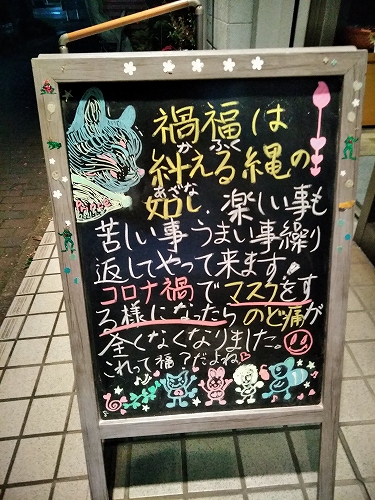 禍福は
か ふく
糾える縄の
あざな
如し. 楽しい事も
苦しい事 うまい事繰り
返してやって来ます!
コロナ禍でマスクをす
る様になったらのど痛が
全くなくなりました。
これって福?だよね♡